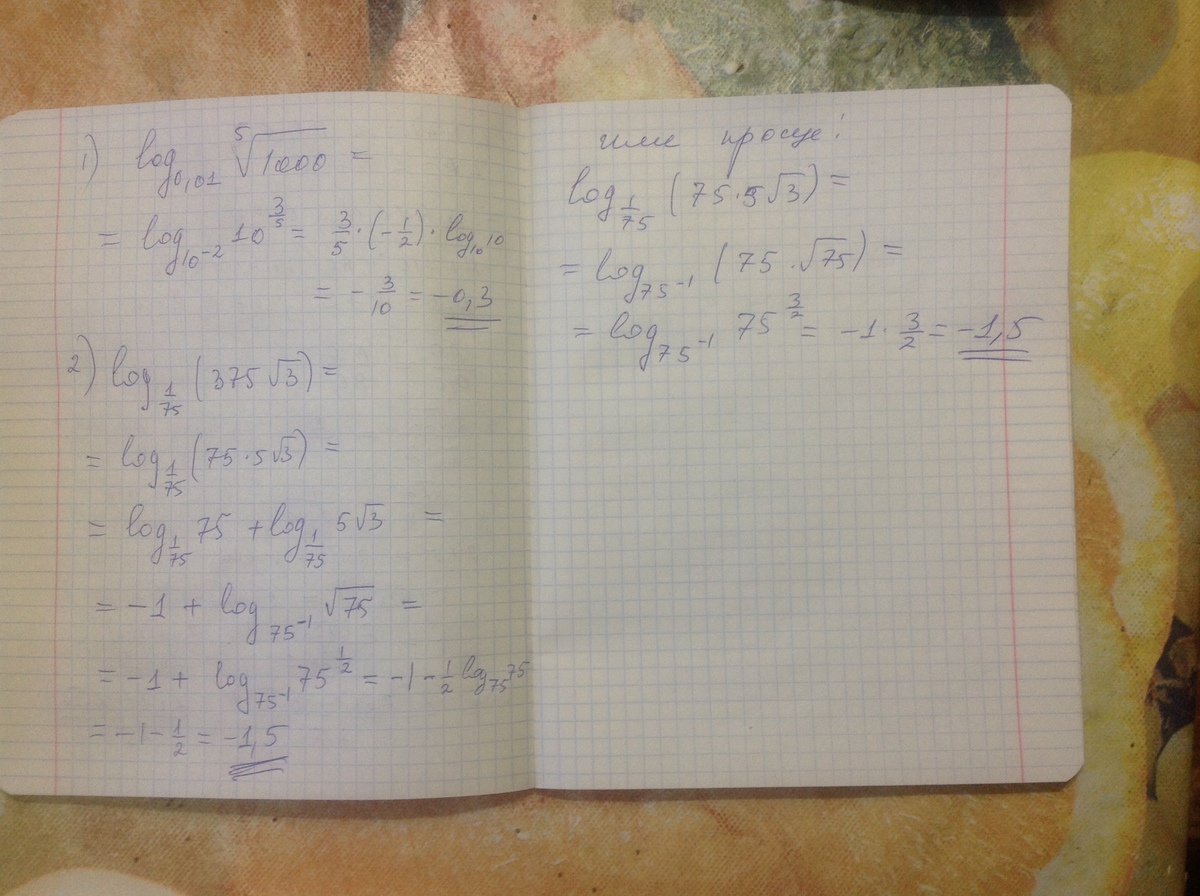 1) log₀,₀₁ ⁵√1000 =
= log₁₀⁻² 10^(3/5) = 3/5 · (-1/2) · log₁₀10
= -3/10 = -0,3
2) log_(1/75) (375√3) =
= log_(1/75) (75·5√3) =
= log_(1/75) 75 + log_(1/75) 5√3 =
= -1 + log_(75⁻¹) √75 =
= -1 + log_(75⁻¹) 75^(1/2) = -1 - 1/2 log₇₅75
= -1 - 1/2 = -1,5
или проще:
log_(1/75) (75·5√3) =
= log_(75⁻¹) (75·√75) =
= log_(75⁻¹) 75^(3/2) = -1 · 3/2 = -1,5